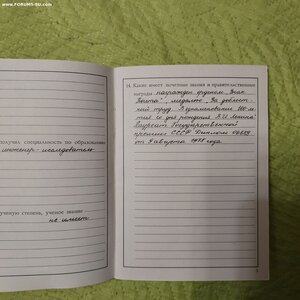 www.FORUMS-SU.com
получал специальность по образованию
инженер-исследователь
ученую степень, ученое звание
не имеет
14. Какие имеет почетные звания и правительственные
награды награжден орденом "Знак
Почета", медалью "За доблест-
ный труд. В ознаменование 100-ле-
тия со дня рождения В.И. Ленина"
Лауреат Государственной
премии СССР Диплом
от августа года